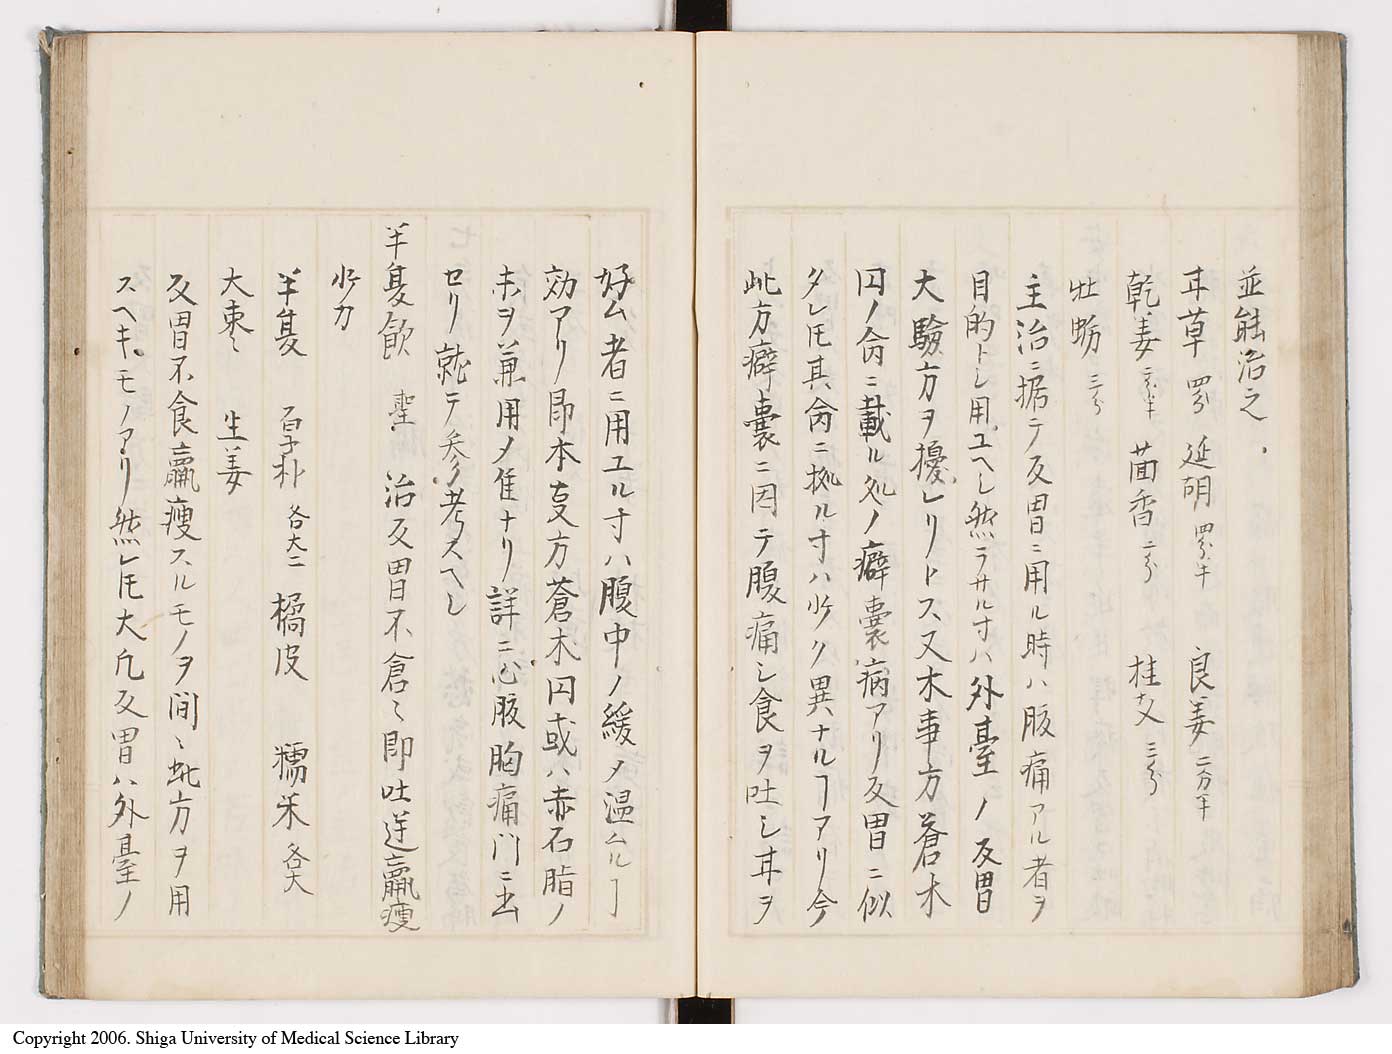 並能治之、
甘草 四分 延胡 四分半 良姜 二分半
乾姜 二分半 茴香 二分 桂支 三分
牡蛎 三分
主治ニ據テ反胃ニ用ル時ハ腹痛アル者ヲ
目的トシ用ユヘシ然ラサル寸ハ外臺ノ反胃
大驗方ヲ擾レリトス又本事方蒼朮
円ノ肏ニ載ル処ノ癖嚢病アリ反胃ニ似
タレ𪜈其肏ニ拠ル寸ハ少ク異ナルヿアリ今
此方癖嚢ニ因テ腹痛シ食ヲ吐シ甘ヲ
好ム者ニ用ユル寸ハ腹中ノ緩メ温ムルヿ
効アリ即本支方蒼朮円或ハ赤石脂ノ
末ヲ兼用メ隹ナリ詳ニ心腹胸痛門ニ出
セリ就テ参考スヘシ
半夏飲 聖 治反胃不食〻即吐逆羸瘦
少力
半夏 百朴 各大二 橘皮 糯米 各大
大棗 生姜
反胃不食羸瘦スルモノヲ間〻此方ヲ用
スヘキモノアリ然レ𪜈大凡反胃ハ外臺ノ
Copyright 2006. Shiga University of Medical Science Library